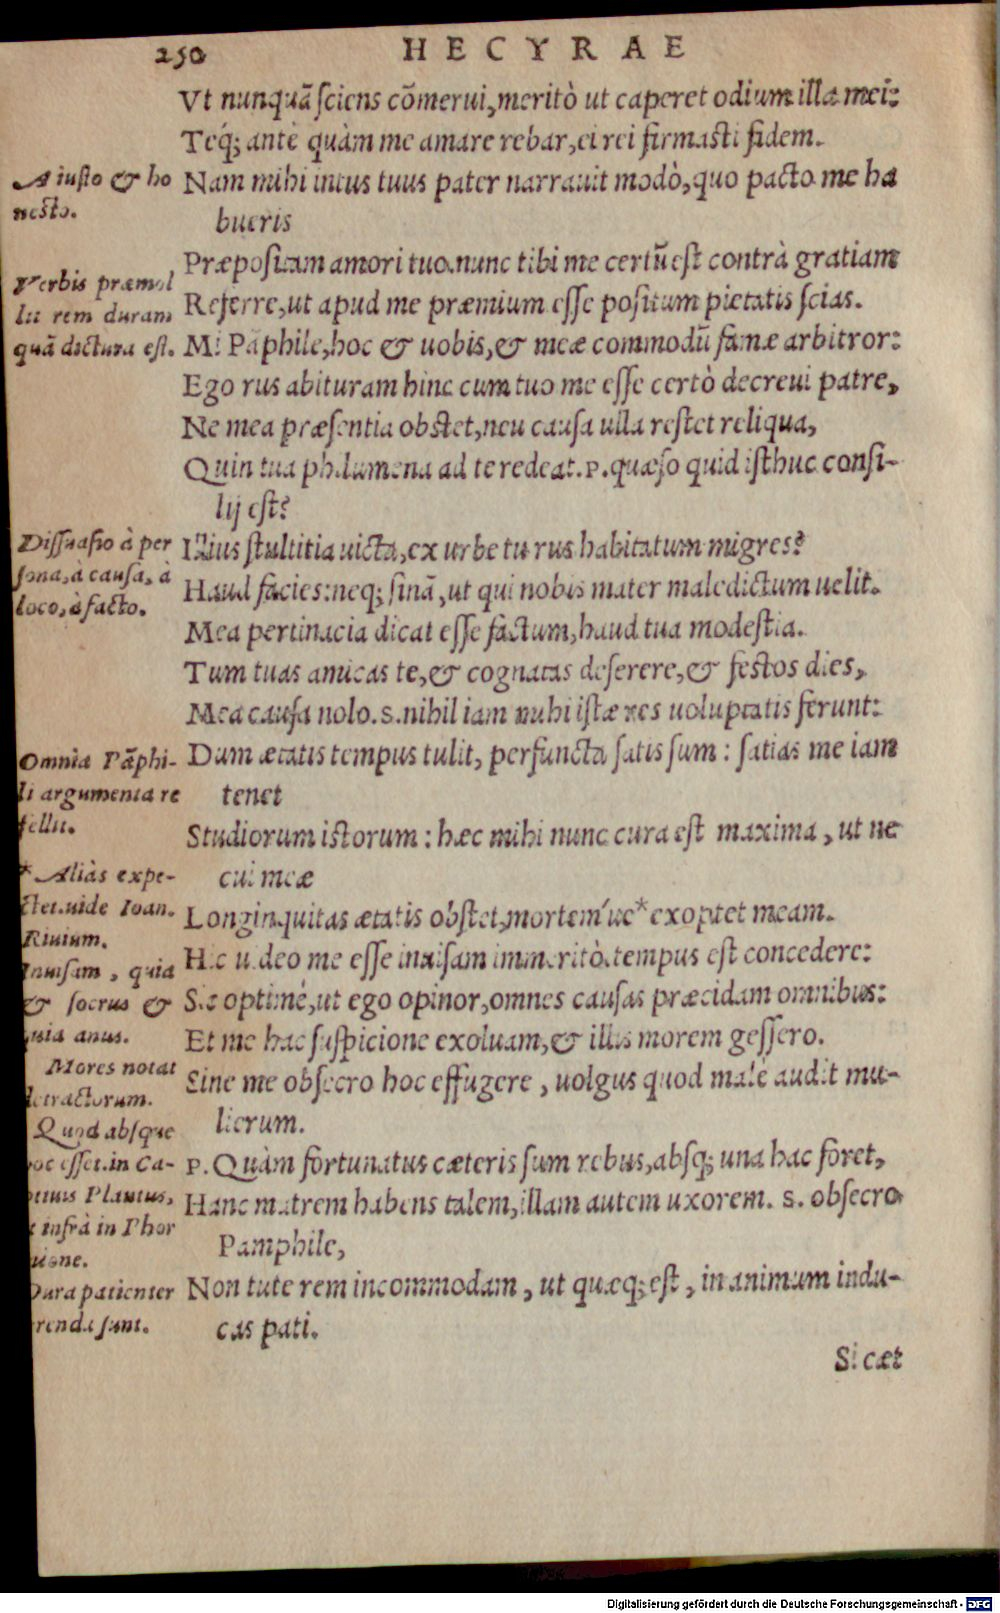 250
HECYRAE
Vt nunquā sciens cōmerui, meritò ut caperet odium illa mei:
Teq́; antè quàm me amare rebar, ei rei firmasti fidem.
Nam mihi intus tuus pater narrauit modò, quo pacto me ha
bueris
Præpositam amori tuo. nunc tibi me certū est contrà gratiam
Referre, ut apud me præmium esse positum pietatis scias.
Mi Pāphile, hoc & uobis, & meæ commodū famæ arbitror:
Ego rus abituram hinc cum tuo me esse certò decreui patre,
Ne mea præsentia obstet, neu causa ulla restet reliqua,
Quin tua philumena ad te redeat. P. quæso quid isthuc consi-
lij est?
Illius stultitia uicta, ex urbe tu rus habitatum migres?
Haud facies: neq; sinā, ut qui nobis mater maledictum uelit.
Mea pertinacia dicat esse factum, haud tua modestia.
Tum tuas amicas te, & cognatas deserere, & festos dies,
Mea causa nolo. S. nihil iam mihi istæ res uoluptatis ferunt:
Dum ætatis tempus tulit, perfuncta satis sum: satias me iam
tenet
Studiorum istorum: hæc mihi nunc cura est maxima, ut ne
cui meæ
Longinquitas ætatis obstet, mortem'ue * exoptet meam.
Hic uideo me esse inuisam immeritò. tempus est concedere:
Sic optimé, ut ego opinor, omnes causas præcidam omnibus:
Et me hac suspicione exoluam, & illis morem gessero.
Sine me obsecro hoc effugere, uolgus quod male audit mu-
lierum.
P. Quàm fortunatus cæteris sum rebus, absq; una hac foret,
Hanc matrem habens talem, illam autem uxorem. S. obsecro
Pamphile,
Non tute rem incommodam, ut quæq; est, in animum indu-
cas pati.
Si cæt
A iusto & ho
nesto.
Verbis præmol
lit rem duram
quā dictura est.
Dissuasio à per
sona, à causa, à
loco, à facto.
Omnia Pāphi-
li argumenta re
fellit.
* Aliàs expe-
ctet. uide Ioan.
Riuium.
Inuisam, quia
& socrus &
quia anus.
Mores notat
detractorum.
Quod absque
hoc esset. in Ca-
ptiuis Plautus,
& infrà in Phor
mione.
Dura patienter
ferenda sunt.
Digitalisierung gefördert durch die Deutsche Forschungsgemeinschaft - DFG